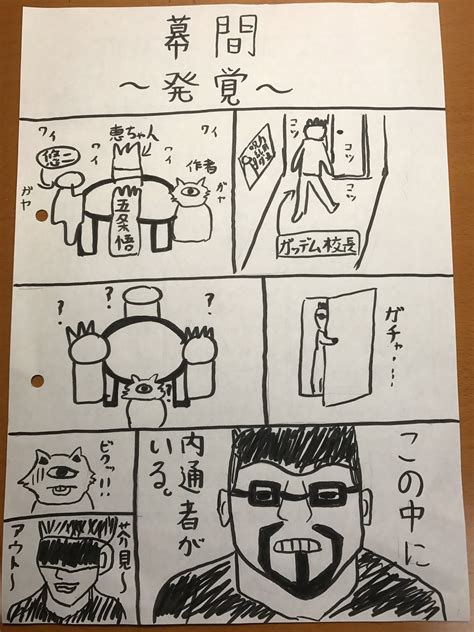 幕間
～発覚～
コツ
コツ
コツ
コツ
ガッデム校長
ワイ
ワイ
恵ちゃん
ワイ
ワイ
作者
悠二
五条悟
ガヤ
ガヤ
ガチャ…
?
?
?
?
この中に
内通者が
いる。
ビクッ!!
芥見～
アウト～